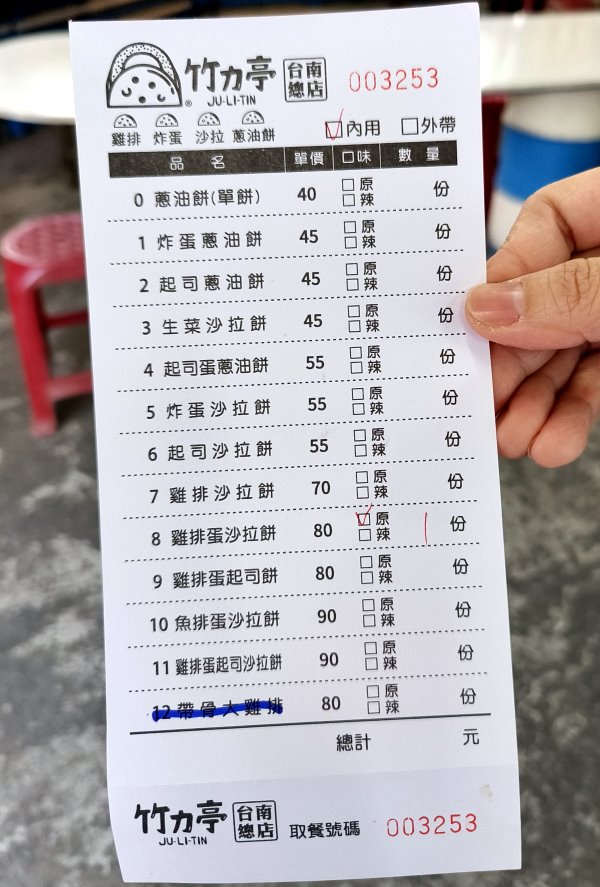 竹力亭 台南總店 003253
JU·LI·TIN
雞排 炸蛋 沙拉 蔥油餅 ☑內用 □外帶
品名 單價 口味 數量
0 蔥油餅(單餅) 40 □原 □辣 份
1 炸蛋蔥油餅 45 □原 □辣 份
2 起司蔥油餅 45 □原 □辣 份
3 生菜沙拉餅 45 □原 □辣 份
4 起司蛋蔥油餅 55 □原 □辣 份
5 炸蛋沙拉餅 55 □原 □辣 份
6 起司沙拉餅 55 □原 □辣 份
7 雞排沙拉餅 70 □原 □辣 份
8 雞排蛋沙拉餅 80 ☑原 □辣 | 份
9 雞排蛋起司餅 80 □原 □辣 份
10 魚排蛋沙拉餅 90 □原 □辣 份
11 雞排蛋起司沙拉餅 90 □原 □辣 份
12 帶骨大雞排 80 □原 □辣 份
總計 元
竹力亭 台南總店 取餐號碼 003253
JU·LI·TIN